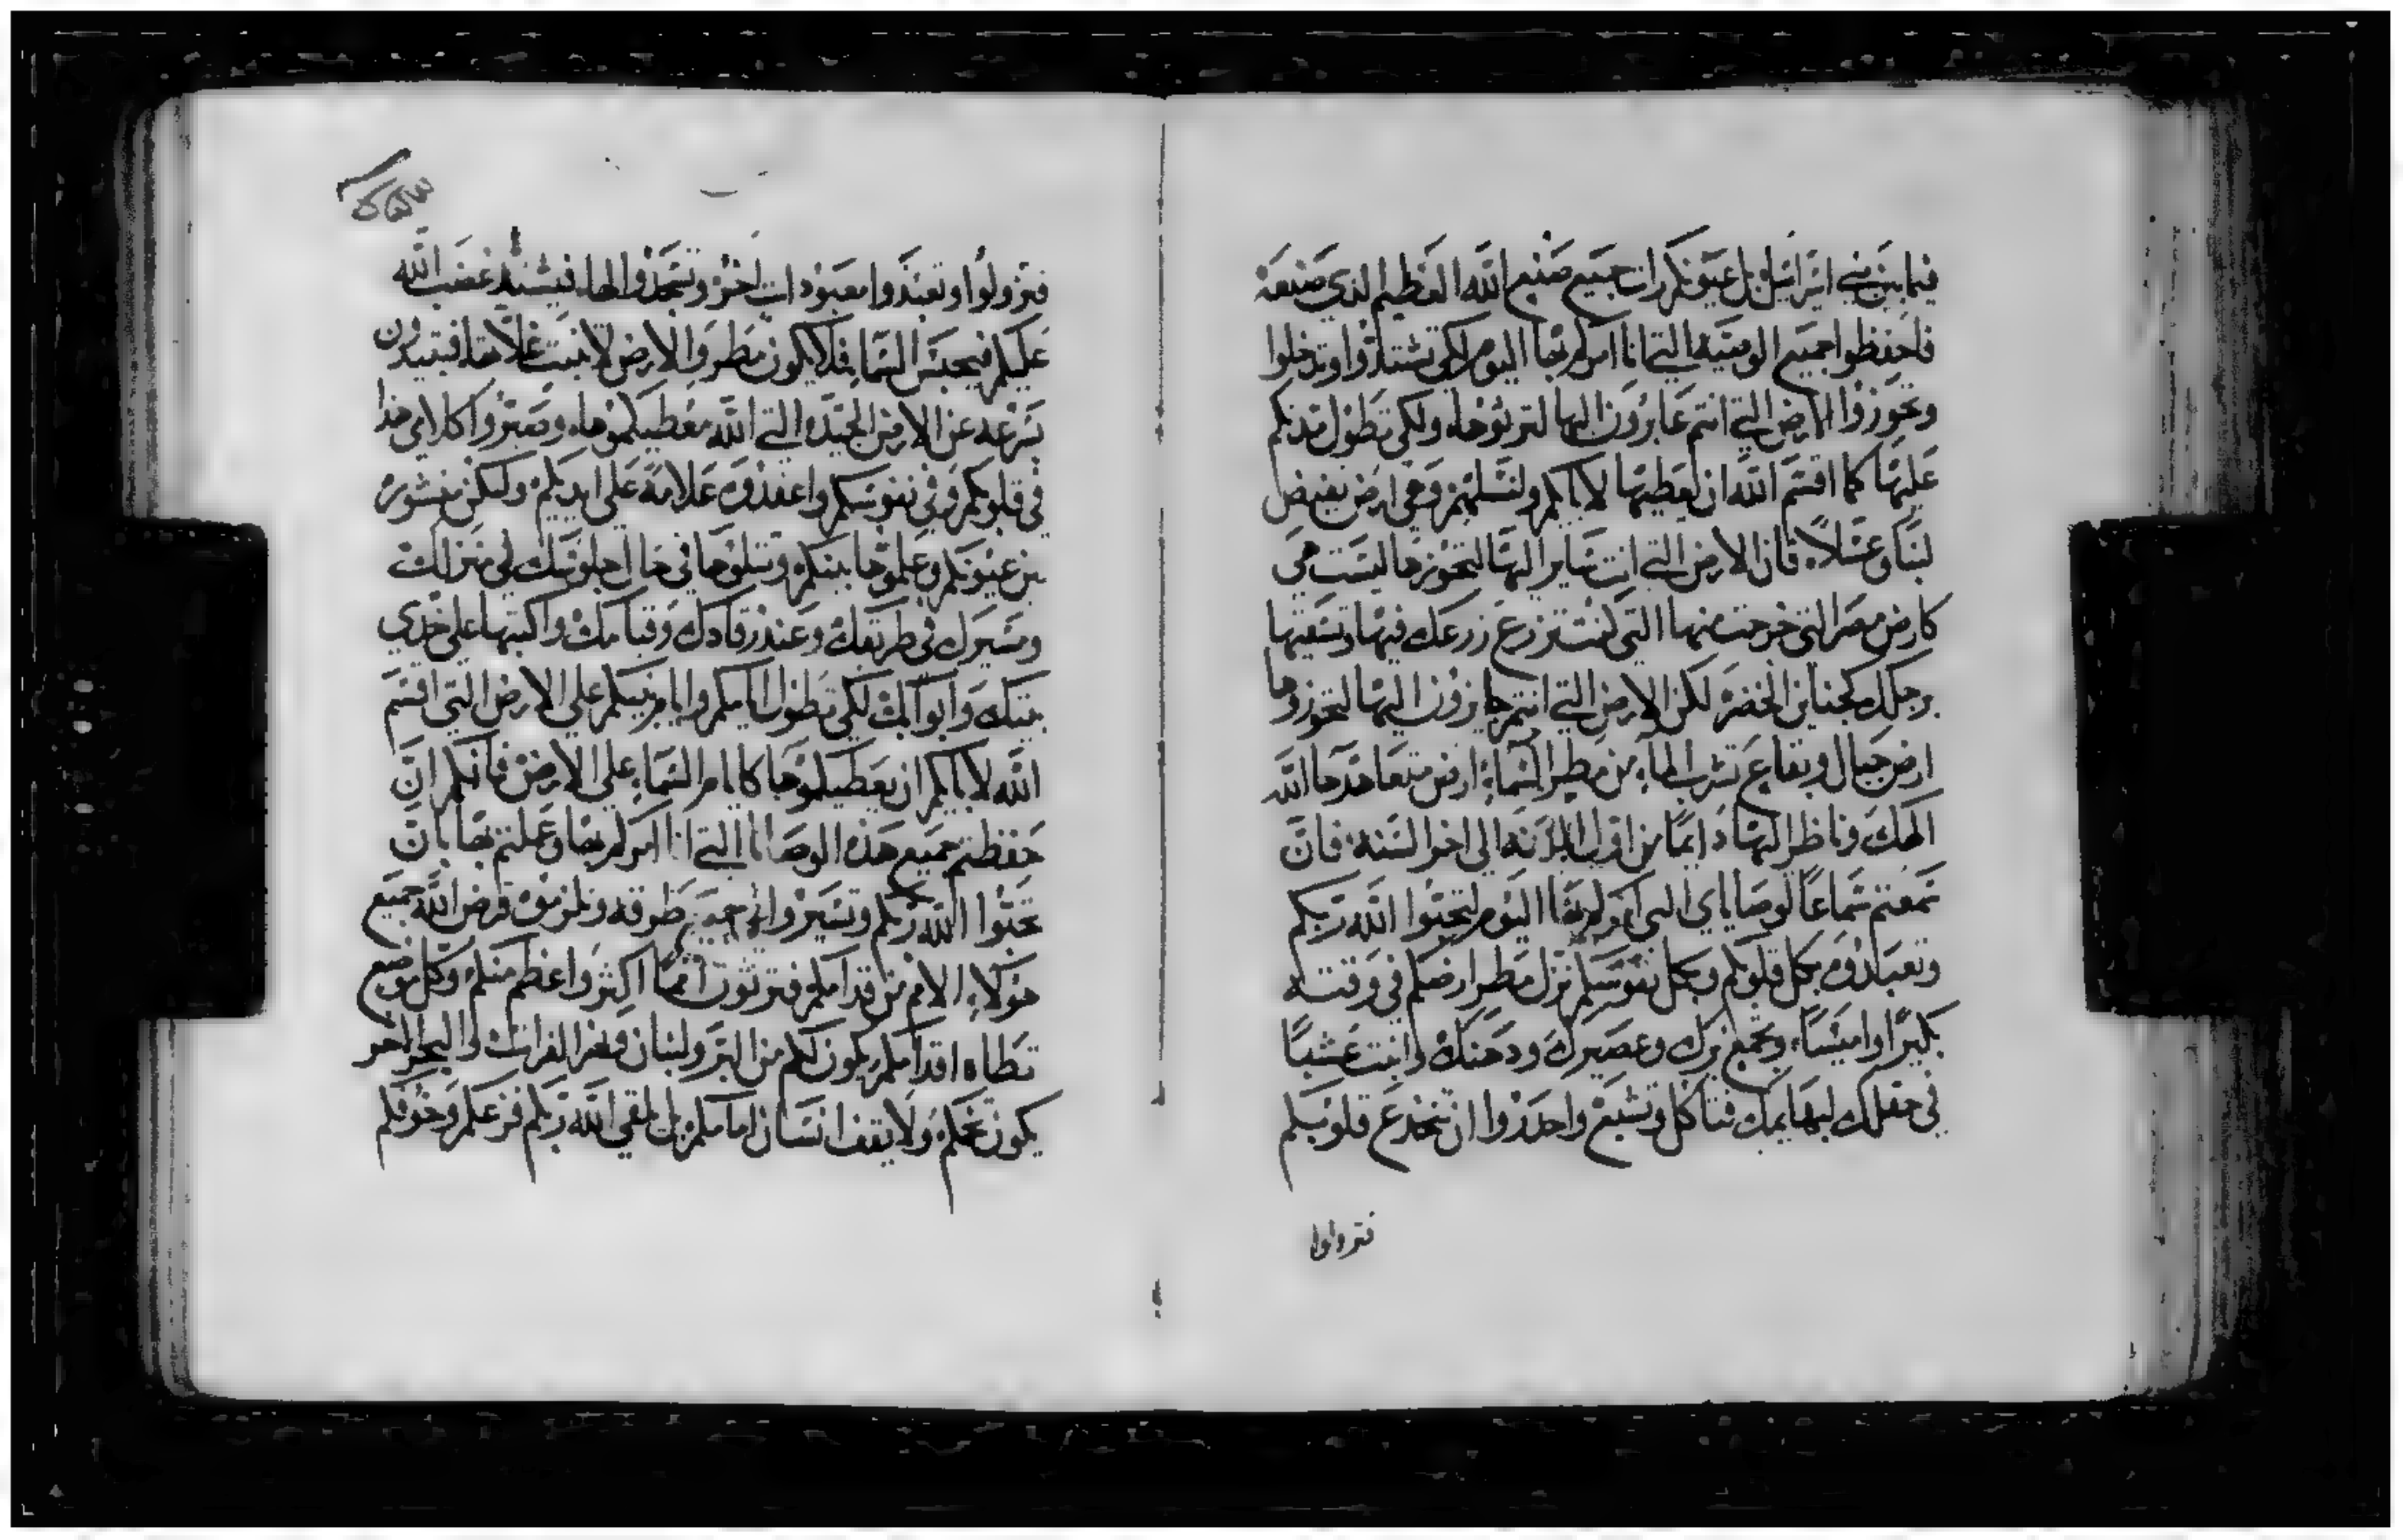 فيما بين بني اسرائيل بل عيونكم رات جميع صنيع الله العظيم الذي صنعه
فاحفظوا جميع الوصيه التي انا امركم بها اليوم لكي تشتدوا وتدخلوا
وتحوزوا الارض التي انتم عابرون اليها لترثوها ولكي تطول مدتكم
عليها كما اقسم الله ان يعطيها لابايكم ولنسلهم وهي ارض تفيض
لبنا وعسلا فان الارض التي انت صاير اليها لتحوزها ليست هي
كارض مصر التي خرجت منها التي كنت تزرع زرعك فيها وتسقيها
برجلك كجنان الخضر لكن الارض التي انتم جايزون اليها لتحوزوها
ارض جبال وبقاع تشرب الماء من مطر السماء ارض متعاهدها الله
الهك وناظر اليها دايما من اول السنه الى اخر السنه فان
سمعتم سماعا لوصاياي التي امركم بها اليوم لتحبوا الله ربكم
وتعبدوه بكل قلوبكم وبكل نفوسكم نزل مطر ارضكم في وقته
بكيرا واميسا وتجمع برك وعصيرك ودهنك وانبت عشبا
في حقلك لبهايمك فتاكل وتشبع واحدروا ان تنخدع قلوبكم
فتزولوا
فتزولوا وتعبدوا معبودات اخر وتسجدوا لها فيشتد غضب الله
عليكم فيحبس السما فلا يكون مطر والارض لا تنبت غلاتها فتبيدون
بسرعه عن الارض الجيده التي الله معطيكموها وصيروا كلامي هذا
في قلوبكم وفي نفوسكم واعقدوه علامة على ايديكم وليكن منشور
بين عيونكم وعلموها بينكم وتتلوها في حال جلوسك في منزلك
ومسيرك في طريقك وعند رقادك وقيامك واكتبها على خدي
بيتك وابوابك لكي تطول ايامكم وايام بنيكم على الارض التي اقسم
الله لابايكم ان يعطيكموها كايام السماء على الارض فانكم ان
حفظتم جميع هذه الوصايا التي انا امركم بها وعملتم بها بان
تحبوا الله ربكم وتسيروا في جميع طرقه وتلزموه قرض الله جميع
هولاء الامم من قدامكم فترثون امما اكثر واعظم منكم وكل موضع
تطاه اقدامكم يكون لكم من البر ولبنان ونهر الفرات الى البحر الاخر
يكون تخمكم ولا يقف انسان امامكم بل يلقي الله ربكم فزعكم وخوفكم